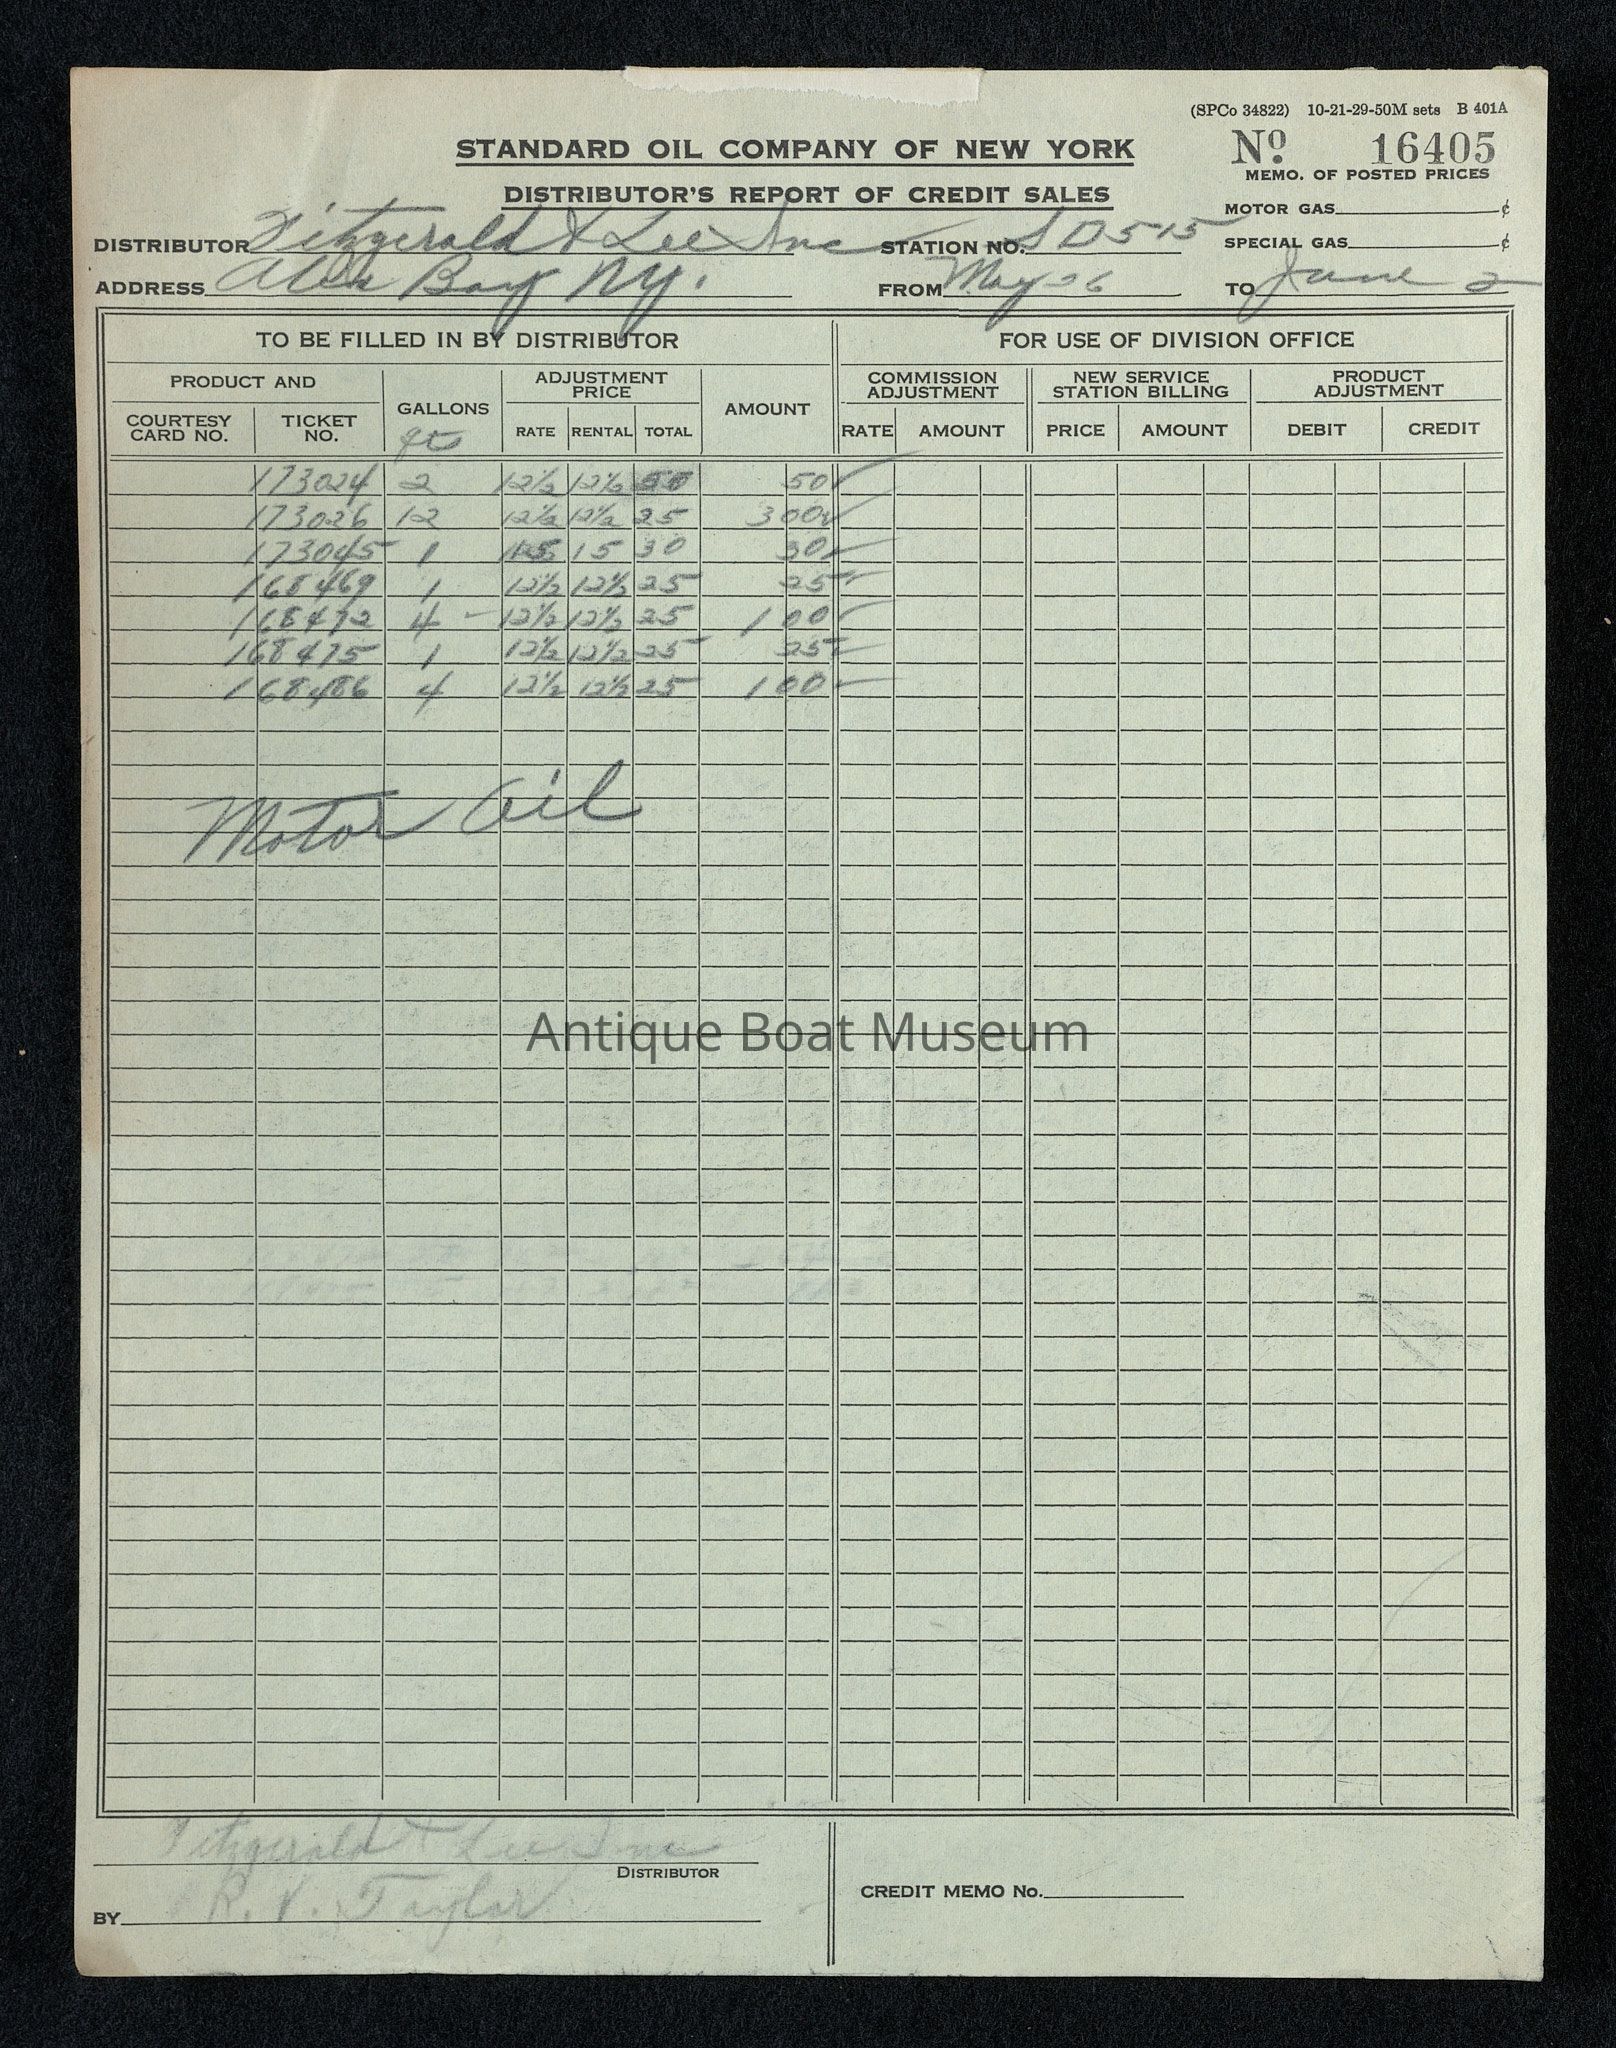 (SPCo 34822) 10-21-29-50M sets B 401A
STANDARD OIL COMPANY OF NEW YORK
Nº 16405
DISTRIBUTOR'S REPORT OF CREDIT SALES
MEMO. OF POSTED PRICES
MOTOR GAS ¢
DISTRIBUTOR Fitzgerald & Lee Inc STATION NO. SD515 SPECIAL GAS ¢
ADDRESS Alex Bay NY. FROM May 26 TO June 2
TO BE FILLED IN BY DISTRIBUTOR FOR USE OF DIVISION OFFICE
PRODUCT AND GALLONS ADJUSTMENT PRICE AMOUNT COMMISSION ADJUSTMENT NEW SERVICE STATION BILLING PRODUCT ADJUSTMENT
COURTESY CARD NO. TICKET NO. qts RATE RENTAL TOTAL RATE AMOUNT PRICE AMOUNT DEBIT CREDIT
173024 2 12½ 12½ 50 50 ✓
173026 12 12½ 12½ 25 300 ✓
173045 1 15 15 30 30 ✓
168469 1 12½ 12½ 25 25 ✓
168472 4 - 12½ 12½ 25 100 ✓
168475 1 12½ 12½ 25 25 ✓
168486 4 12½ 12½ 25 100 ✓
Motor Oil
Antique Boat Museum
Fitzgerald & Lee Inc
DISTRIBUTOR
CREDIT MEMO No.
BY R. V. Taylor